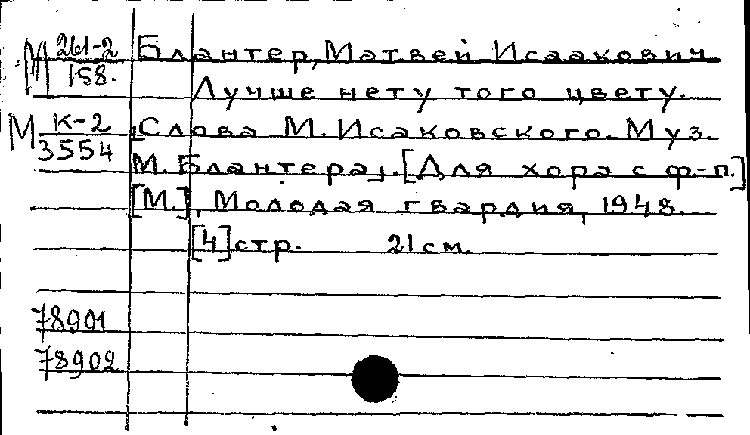 М 261-2/158.
Блантер, Матвей Исаакович
Лучше нету того цвету.
М К-2/3554
[Слова М. Исаковского. Муз.
М. Блантера]. [Для хора с ф-п.]
[М.], Молодая гвардия, 1948.
[4] стр. 21 см.
78901
78902